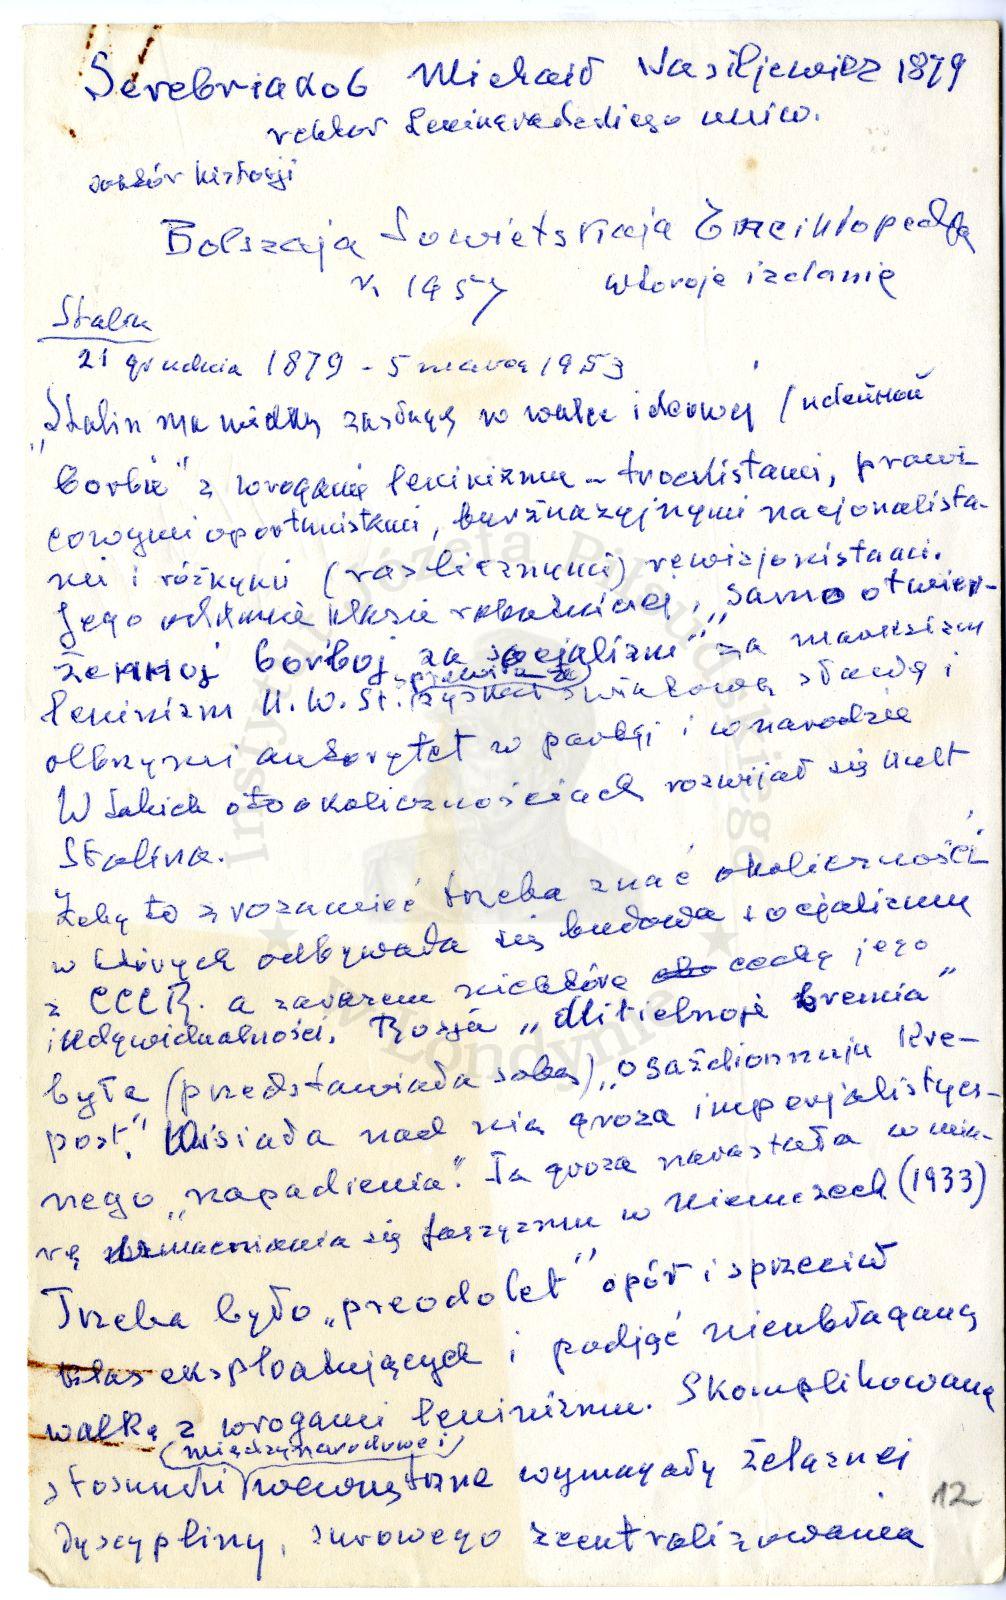 Serebriakob Michaił Wasiljewicz 1879
rektor Leningradskiego uniw.
doktór historji
Bolszaja Sowietskaja Encikłopedja
r. 1957 wtoroje izdanie
Stalin
21 grudnia 1879 - 5 marca 1953
"Stalin ma wielką zasługę w walce ideowej (идейной
borbie" z wrogami leninizmu - trockistami, prawi-
cowymi oportunistami, burżuazyjnymi nacjonalista-
mi i różnymi (razlicznymi) rewizjonistami.
Jego oddanie klasie robotniczej, "samootwier-
żennoj borboj za socjalizm" za marksizm
leninizm J.W.St. zyskał światową sławę i
olbrzymi autorytet w partji i w narodzie
W takich oto okolicznościach rozwijał się kult
Stalina.
Żeby to zrozumieć trzeba znać okoliczności
w których odbywała się budowa socjalizmu
z CCCR. a zarazem niektóre cechy jego
indywidualności. Rosja "dlitielnoje wremia"
była (przedstawiała sobą) "osażdionnuju kre-
post". Wisiała nad nią groza imperjalistycz-
nego "napadienia". Ta groza narastała w mia-
rę umacniania się faszyzmu w Niemczech (1933)
Trzeba było "preodolet" opór i sprzeciw
klas eksploatujących i podjąć nieubłaganą
walkę z wrogami leninizmu. Skomplikowaną
(międzynarodowe i)
stosunki wewnętrzne wymagały żelaznej
dyscypliny, surowego zcentralizowania
12
Instytut Józefa Piłsudskiego
w Londynie